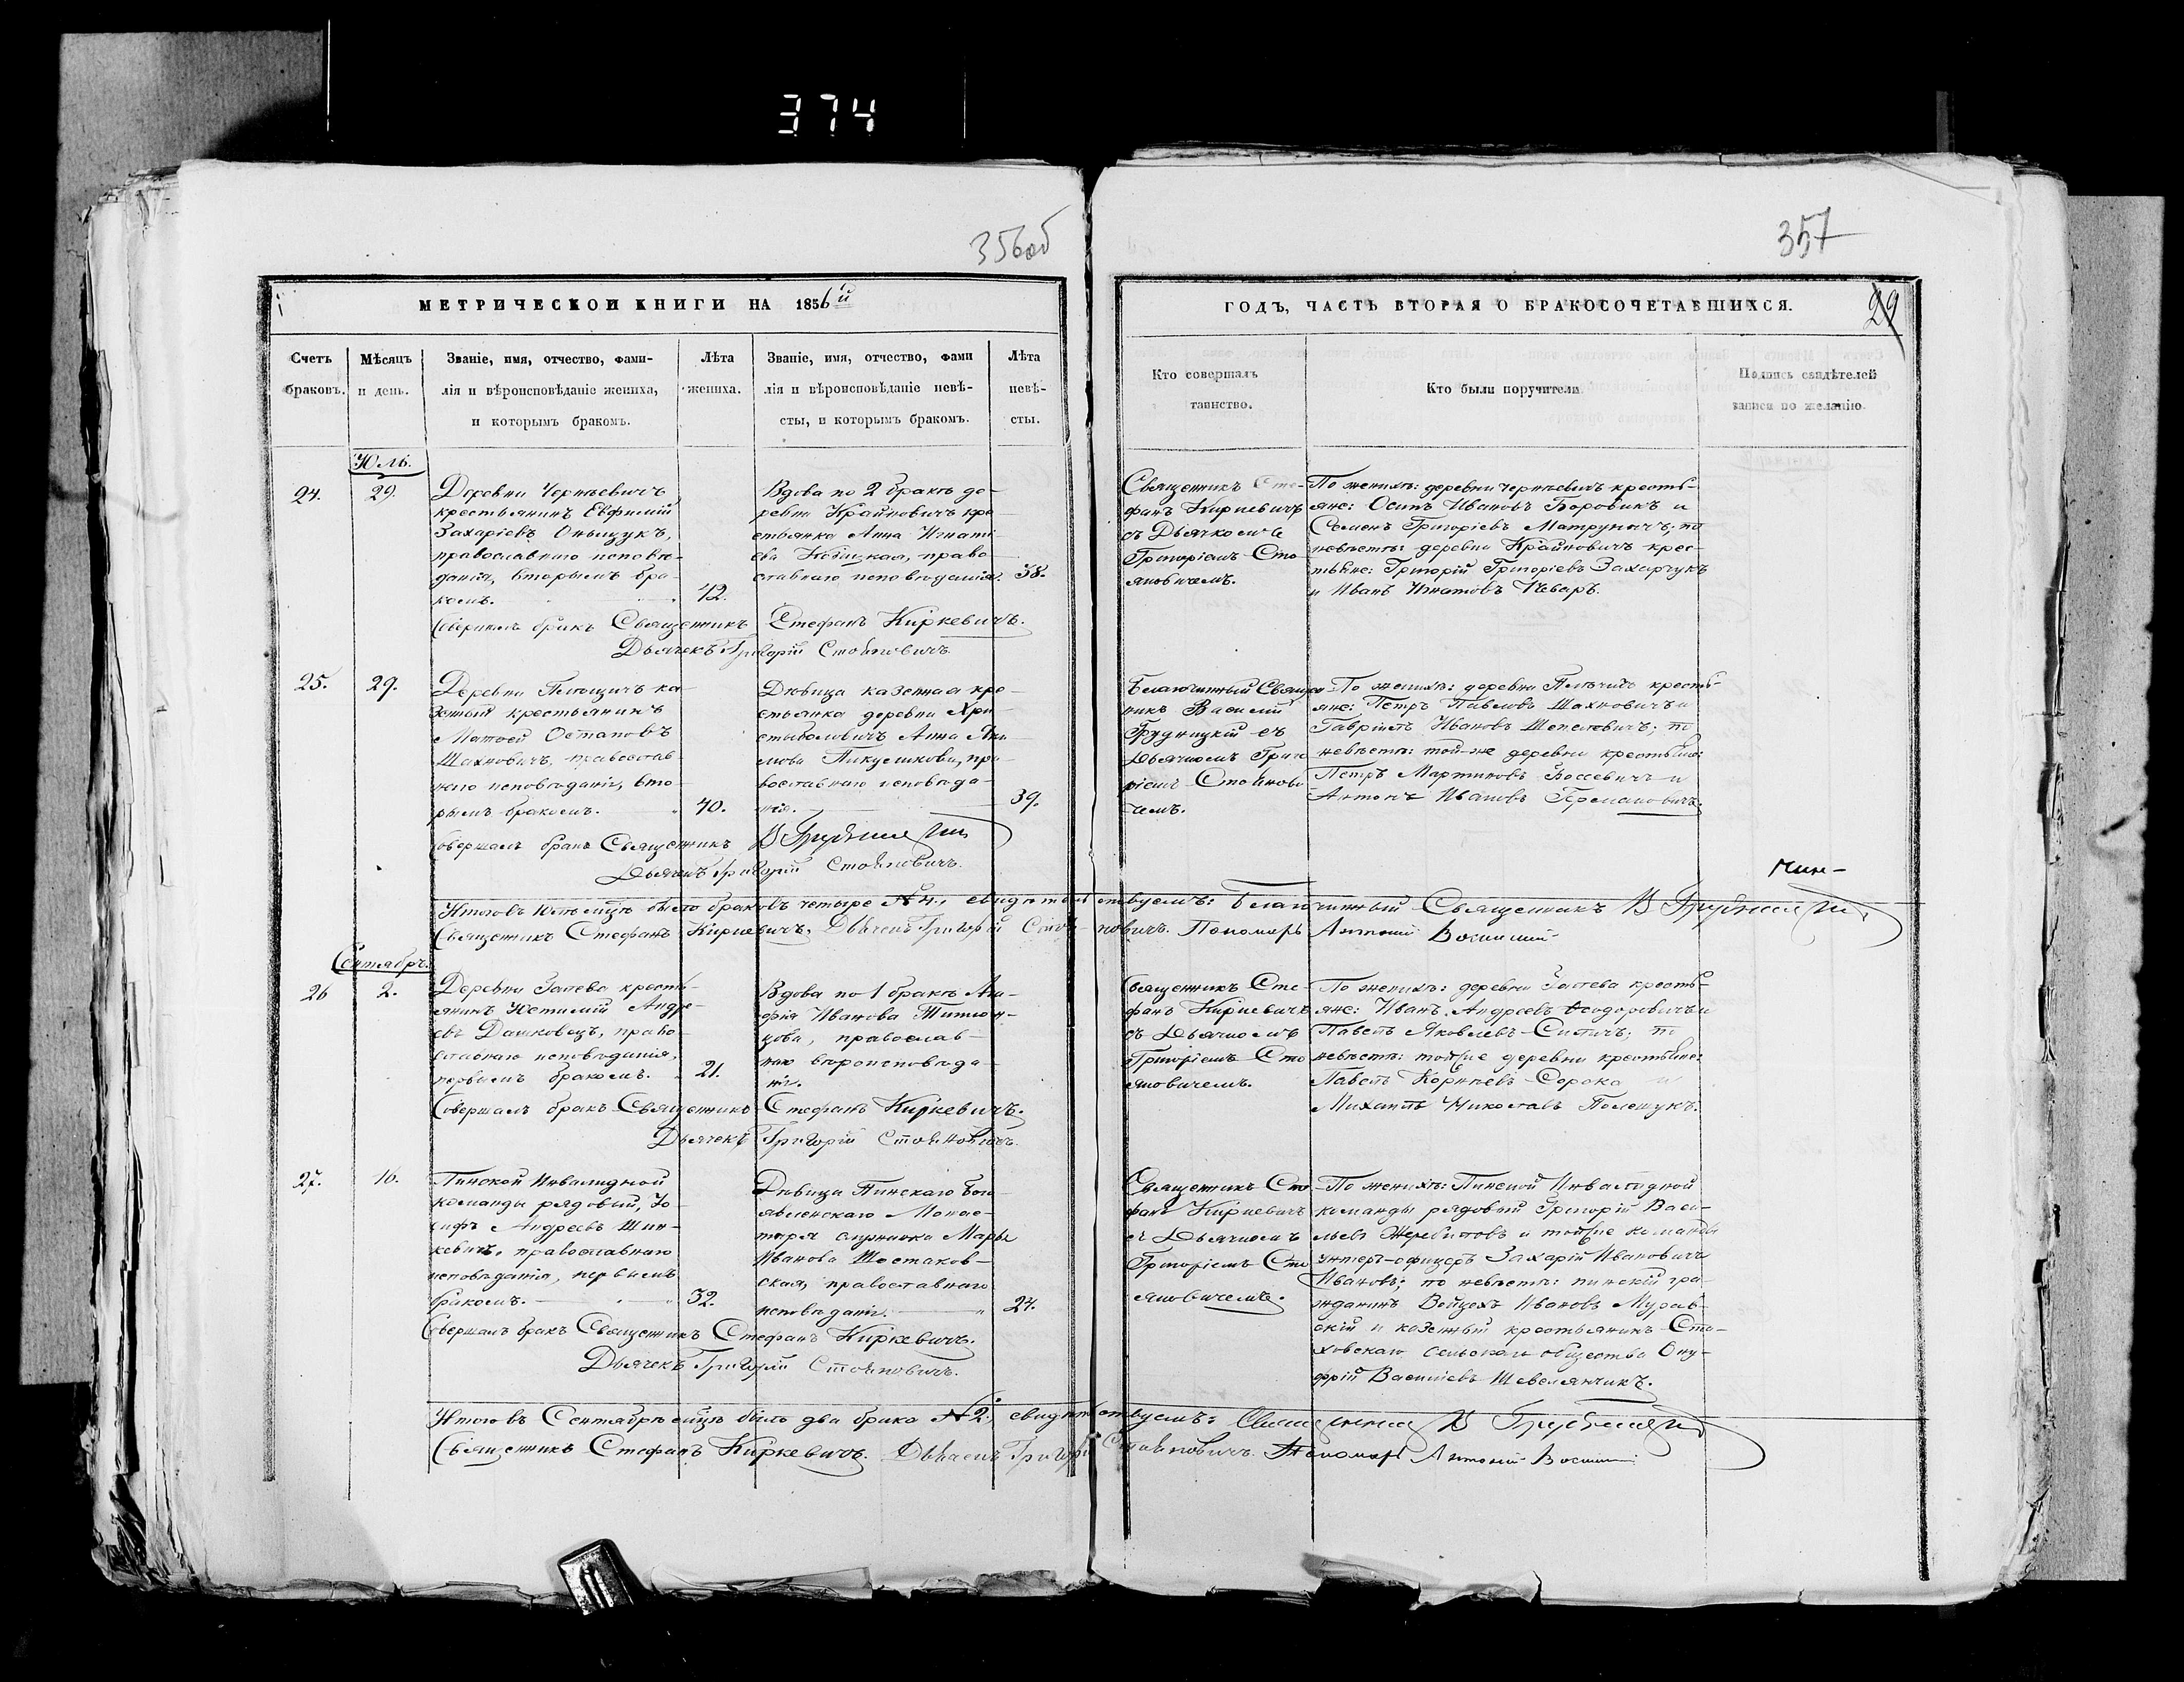 374
356об
357
МЕТРИЧЕСКОЙ КНИГИ НА 1856й
ГОДЪ, ЧАСТЬ ВТОРАЯ О БРАКОСОЧЕТАВШИХСЯ.
29
Счетъ браковъ.
Мѣсяцъ и день.
Званіе, имя, отчество, фами-
лія и вѣроисповѣданіе жениха,
и которымъ бракомъ.
Лѣта
жениха.
Званіе, имя, отчество, фами
лія и вѣроисповѣданіе невѣ-
сты, и которымъ бракомъ.
Лѣта
невѣ-
сты.
Кто совершалъ
таинство.
Кто были поручители
Подпись свидѣтелей
записи по желанію.
Юль.
24.
29.
Деревни Черневичъ
крестьянинъ Евфимій
Захаріевъ Оныщукъ,
православнаго исповѣ-
данія, вторымъ бра-
комъ.
42.
Вдова по 2 бракѣ де-
ревни Крайновичъ кре
стьянка Анна Игнаті
ева, право
славнаго исповѣданія.
38.
Священникъ Сте-
фанъ Киркевичъ
съ Дьячкомъ
Григоріемъ Сто
яновичемъ.
По женихѣ: деревни Черневичъ кресть-
яне: Осипъ Ивановъ Боровикъ и
Семенъ Григоріевъ Матруничъ; по
невѣстѣ: деревни Крайновичъ крес-
тьяне: Григорій Григоріевъ Захарчукъ
и Иванъ Игнатовъ
Совершилъ бракъ Священникъ Стефанъ Киркевичъ.
Дьячекъ Григорій Стояновичъ
25.
29.
Деревни ка
зенный крестьянинъ
Матѳей Остаповъ
Шахновичъ, православ
наго исповѣданія, вто-
рымъ бракомъ.
40.
Дѣвица казенная кре-
стьянка деревни Хри-
стыболовичъ Анна
Пикуликова, пра-
вославнаго исповѣда-
нія.
39.
Благочинный Священ
никъ Василій
Грудницкій съ
Дьячкомъ Григо
ріемъ Стоянови
чемъ.
По женихѣ: деревни кресть-
яне: Петръ Павловъ Шахновичъ и
Гавріилъ Ивановъ Шепелевичъ; по
невѣстѣ: той-же деревни крестьяне:
Петръ Мартиновъ и
Антонъ Ивановъ
Совершалъ бракъ Священникъ В Грудницкій
Дьячекъ Григорій Стояновичъ.
Итого въ Юлѣ мѣсяцѣ было браковъ четыре №4, свидѣтельствуемъ: Благочинный Священникъ В Грудницкій
Священникъ Стефанъ Киркевичъ, Дьячекъ Григорій Стояновичъ. Пономарь Антоній
Сентябрь.
26
2.
Деревни Затева кресть-
янинъ Андре-
евъ Дашковецъ, право-
славнаго исповѣданія,
первымъ бракомъ.
21.
Вдова по 1 бракѣ Ага-
фія Иванова
, православ-
наго вѣроисповѣда-
нія.
Священникъ Сте-
фанъ Киркевичъ
съ Дьячкомъ
Григоріемъ Сто
яновичемъ.
По женихѣ: деревни Затева кресть-
яне: Иванъ Андреевъ Ѳеодоровичъ и
Павелъ Яковлевъ Ситичъ; по
невѣстѣ: тойже деревни крестьяне:
Павелъ Корнѣевъ Сорока и
Михаилъ Николаевъ Полещукъ.
Совершалъ бракъ Священникъ Стефанъ Киркевичъ.
Дьячекъ Григорій Стояновичъ.
27.
16.
Пинской Инвалидной
команды рядовый, Іо
сифъ Андреевъ Шин-
кевичъ, православнаго
исповѣданія, первымъ
бракомъ.
32.
Дѣвица Пинскаго Бого
явленскаго Монас-
тыря служанка Марья
Иванова Шостаков-
ская, православнаго
исповѣданія.
24.
Священникъ Сте
фанъ Киркевичъ
съ Дьячкомъ
Григоріемъ Сто
яновичемъ.
По женихѣ: Пинской Инвалидной
команды рядовый Григорій Васи-
льевъ Жеребитовъ и тойже команды
унтеръ-офицеръ Захарій Ивановичъ
Ивановъ; по невѣстѣ: пинскій гра-
жданинъ Войцехъ Ивановъ Мурав-
скій и казенный крестьянинъ Ста-
ховскаго сельскаго общества Ону-
фрій Василіевъ Шевелянчикъ.
Совершалъ бракъ Священникъ Стефанъ Киркевичъ.
Дьячекъ Григорій Стояновичъ.
Итого въ Сентябрѣ мѣсяцѣ было два брака №2, свидѣтельствуемъ: Священникъ В Грудницкій
Священникъ Стефанъ Киркевичъ. Дьячекъ Григорій Стояновичъ. Пономарь Антоній